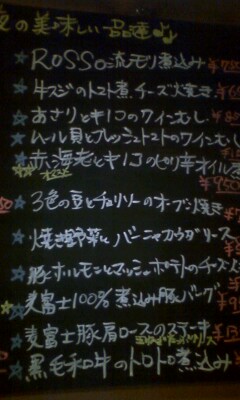 夜の美味しい品達
★ROSSO流モツ煮込み ¥7
★牛スジのトマト煮チーズ焼き ¥6
★あさりとキノコのワインむし ¥8
★ムール貝とフレッシュトマトのワインむし
★赤海老とキノコのピリ辛オイル
¥950
★3色の豆とチョリソーのオーブン焼き
★焼き野菜とバーニャカウダソース
★豚ホルモンとマッシュポテトのチーズ
★麦富士100%煮込み豚バーグ
★麦富士豚肩ロースのステーキ
★黒毛和牛のトロトロ煮込み